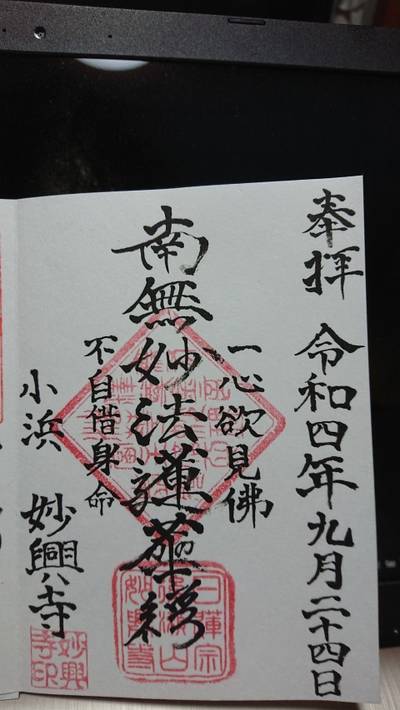 奉拝 令和四年九月二十四日
一心欲見佛
南無妙法蓮華経
不自惜身命
小浜 妙興寺
日蓮宗
妙興寺
妙興寺印